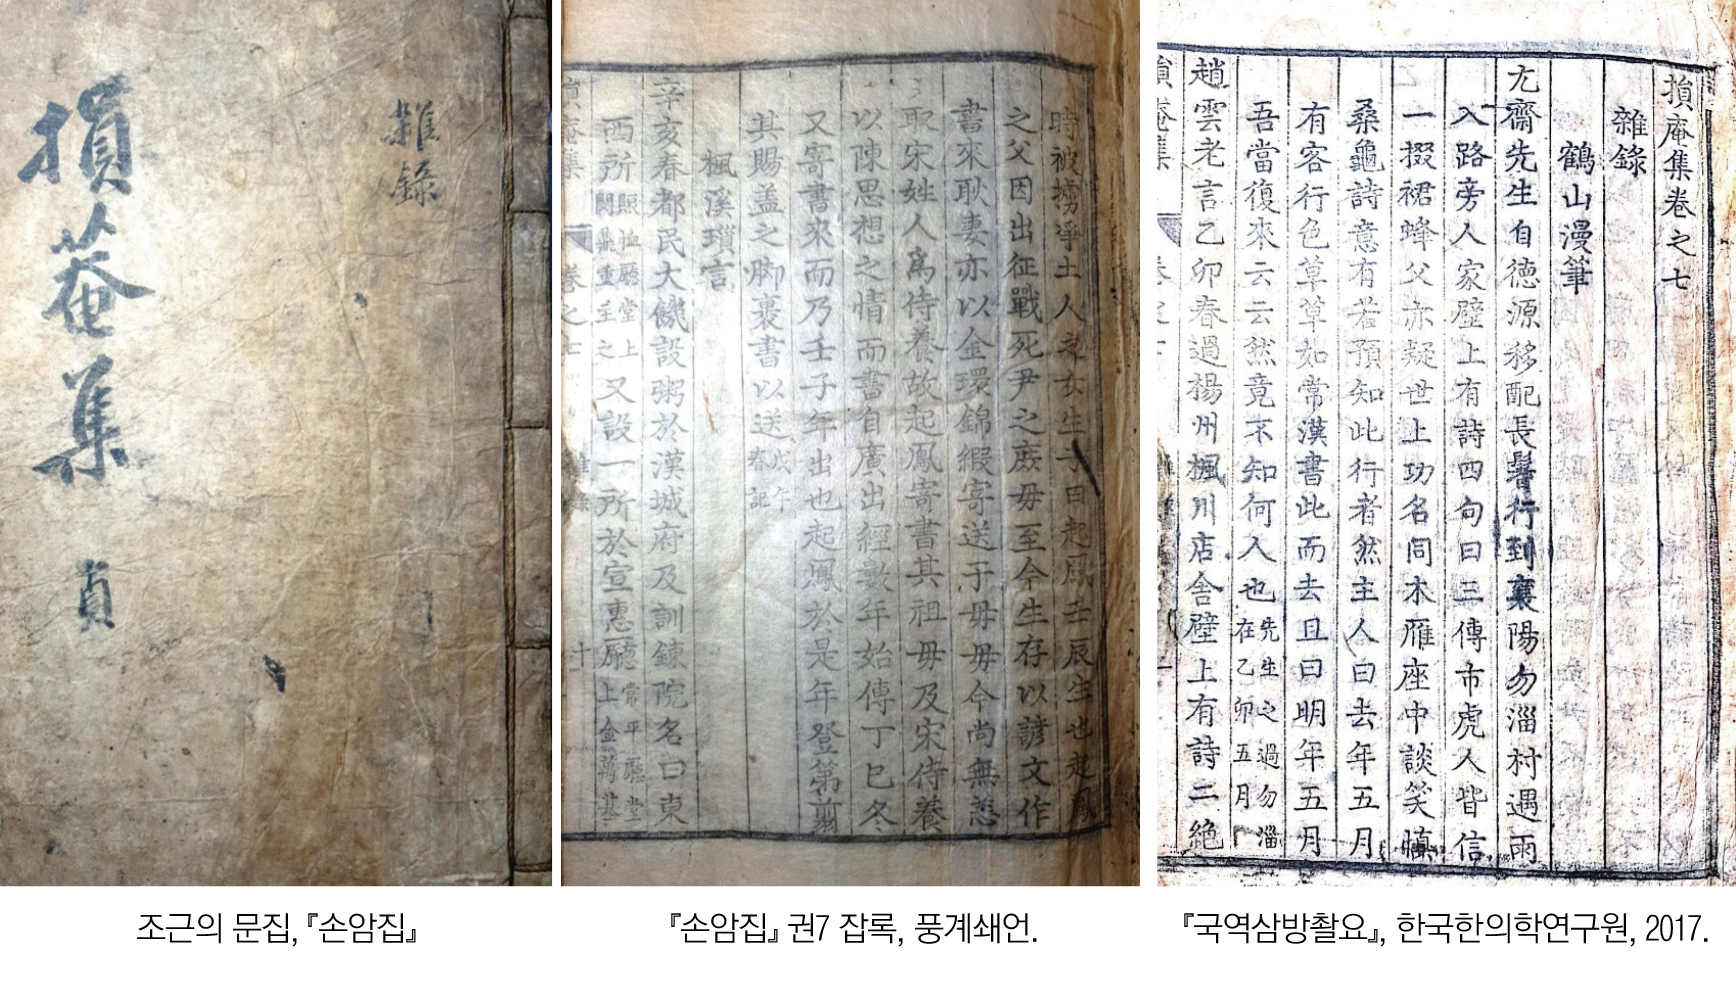 損菴集 貞
雜錄
時被擄爭土人之女生子曰起鳳壬辰生也起鳳
之父因出征戰死尹之廐毋至今生存以諺文作
書來耿妻亦以金環錦緞寄送于毋毋今尚無恙
耶宋姓人爲侍養故起鳳寄書其祖毋及宋侍養
以陳思想之情而書自廣出經數年始傳丁巳冬
又寄書來而乃壬子年出也起鳳於是年登第翦
其賜盖之脚裹書以送 戊午春記
楓溪瑣言
辛亥春都民大饑設粥於漢城府及訓鍊院名曰東
西所 賑恤廳堂上閔鼎重主之 又設一所於宣惠廳 常平廳堂上金萬基
損庵集 卷之七 雜錄 十
損庵集卷之七
雜錄
鶴山漫筆
尤齋先生自德源移配長鬐行到襄陽勿淄村遇雨
入路旁人家壁上有詩四句曰三傳市虎人皆信
一掇裙蜂父亦疑世上功名同木雁座中談笑愼
桑龜詩意有若預知此行者然主人曰去年五月
有客行色草草如常漢書此而去且曰明年五月
吾當復來云云然竟不知何人也 先生之過勿淄在乙卯五月
趙雲老言乙卯春過楊州楓川店舍壁上有詩二絶
損庵集
조근의 문집, 『손암집』
『손암집』 권7 잡록, 풍계쇄언.
『국역삼방촬요』, 한국한의학연구원, 2017.